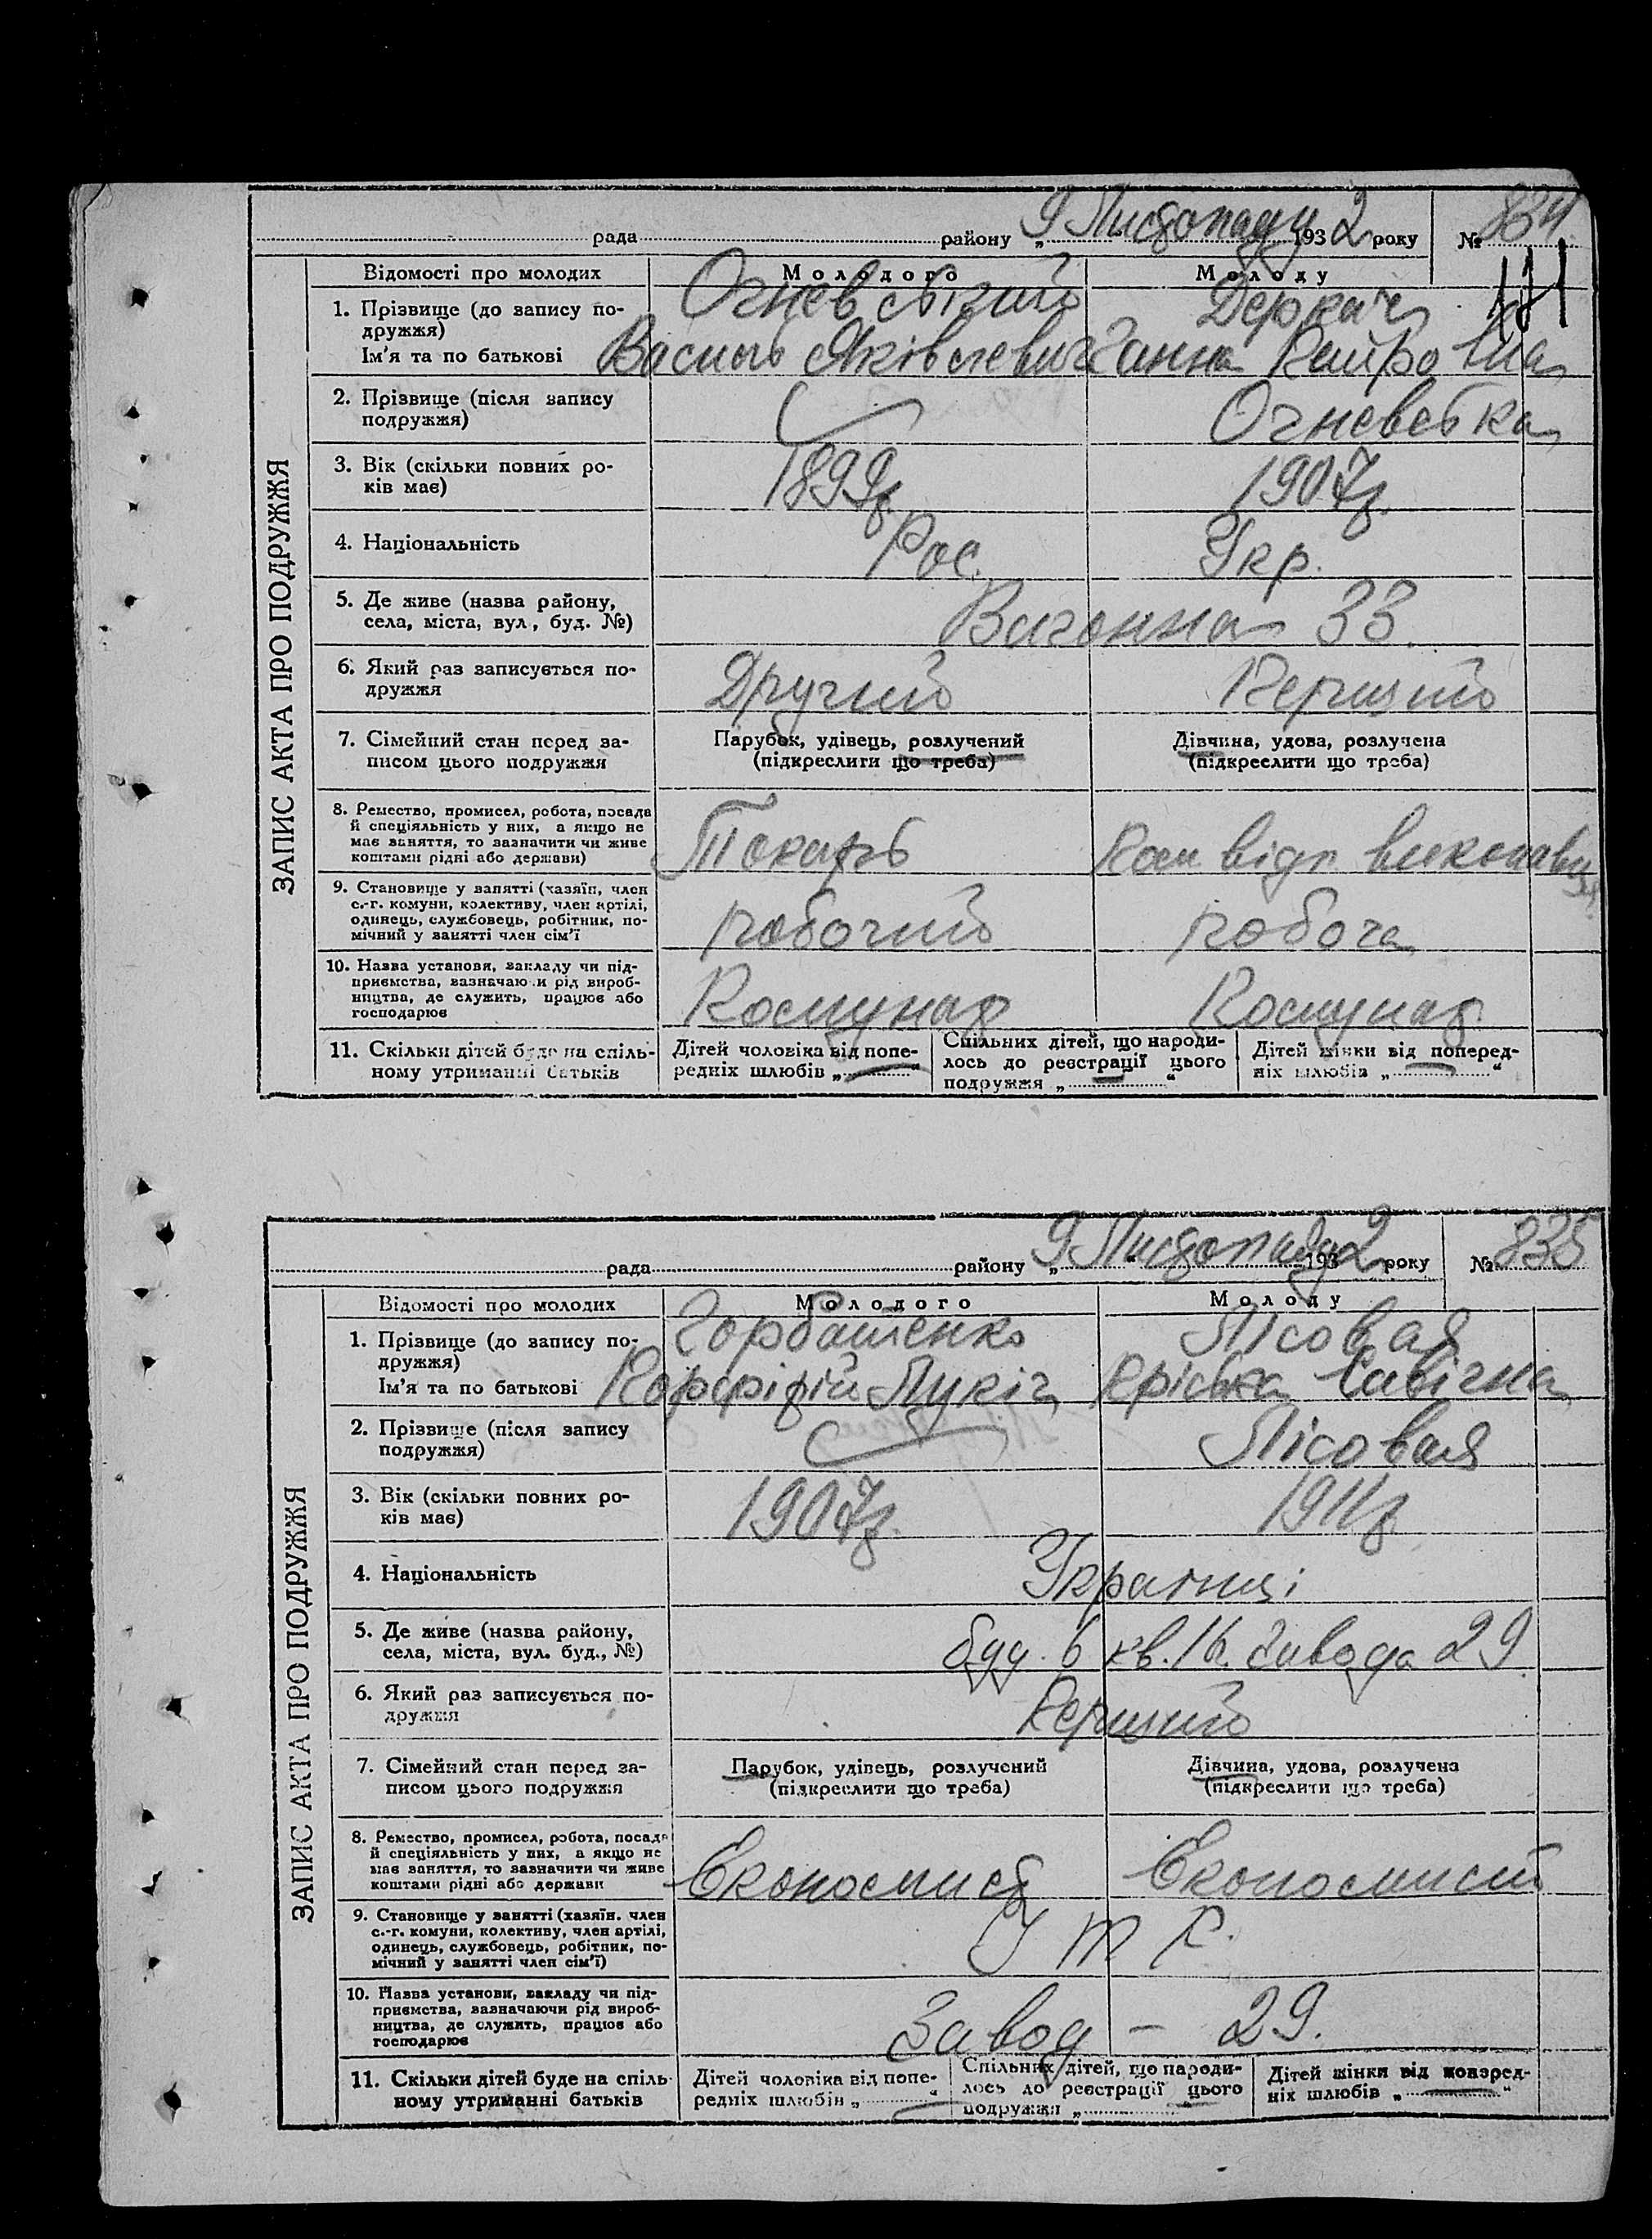 рада района „9 Листопаду 1932 року № 834
ЗАПИС АКТА ПРО ПОДРУЖЖЯ
Відомості про молодих Молодого Молоду
1. Прізвище (до запису по-
дружжя)
Огневський Деркач
Ім'я та по батькові Василь Яківлевич Ганна
2. Прізвище (після запису
подружжя)
Огневська
3. Вік (скільки повних ро-
ків має)
1899р. 1907р.
4. Національність Рос. Укр.
5. Де живе (назва району,
села, міста, вул., буд. №)
Вагонна 33
6. Який раз записується по-
дружжя
Другий Перший
7. Сімейний стан перед за-
писом цього подружжя
Парубок, удівець, розлучений
(підкреслити що треба)
Дівчина, удова, розлучена
(підкреслити що треба)
8. Ремество, промисел, робота, посада
й спеціяльність у них, а якщо не
має заняття, то зазначити чи живе
коштами рідні або держави)
Токарь
9. Становище у занятті (хазяїн, член
с.-г. комуни, колективу, член артілі,
одинець, службовець, робітник, по-
мічний у занятті член сім'ї
робочий робоча
10. Назва установи, закладу чи під-
приємства, зазначаючи рід вироб-
ництва, де служить, працює або
господарює
Комунар Комунар
11. Скільки дітей буде на спіль-
ному утриманні батьків
Дітей чоловіка від попе-
редніх шлюбів „ “
Спільних дітей, що народи-
лось до реєстрації цього
подружжя „ “
Дітей жінки від поперед-
ніх шлюбів „ “
рада району „9 Листопаду 1932 року № 835
ЗАПИС АКТА ПРО ПОДРУЖЖЯ
Відомості про молодих Молодого Молоду
1. Прізвище (до запису по-
дружжя)
Горбатенко Лісовая
Ім'я та по батькові Лукіч Савічна
2. Прізвище (після запису
подружжя)
Лісовая
3. Вік (скільки повних ро-
ків має)
1907р. 1911р.
4. Національність Украінці
5. Де живе (назва району,
села, міста, вул. буд., №)
буд. 6 кв. 16. Завода 29
6. Який раз записується по-
дружжя
Перший
7. Сімейний стан перед за-
писом цього подружжя
Парубок, удівець, розлучений
(підкреслити що треба)
Дівчина, удова, розлучена
(підкреслити що треба)
8. Ремество, промисел, робота, посада
й спеціяльність у них, а якщо не
має заняття, то зазначити чи живе
коштами рідні або держави
Економист Економист
9. Становище у занятті (хазяїн. член
с.-г. комуни, колективу, член артілі,
одинець, службовець, робітник, по-
мічний у занятті член сім'ї)
І т Р.
10. Назва установи, закладу чи під-
приємства, зазначаючи рід вироб-
ництва, де служить, працює або
господарює
Завод - 29.
11. Скільки дітей буде на спіль-
ному утриманні батьків
Дітей чоловіка від попе-
редніх шлюбів „ “
Спільних дітей, що народи-
лось до реєстрації цього
подружжя „ “
Дітей жінки від поперед-
ніх шлюбів „ “